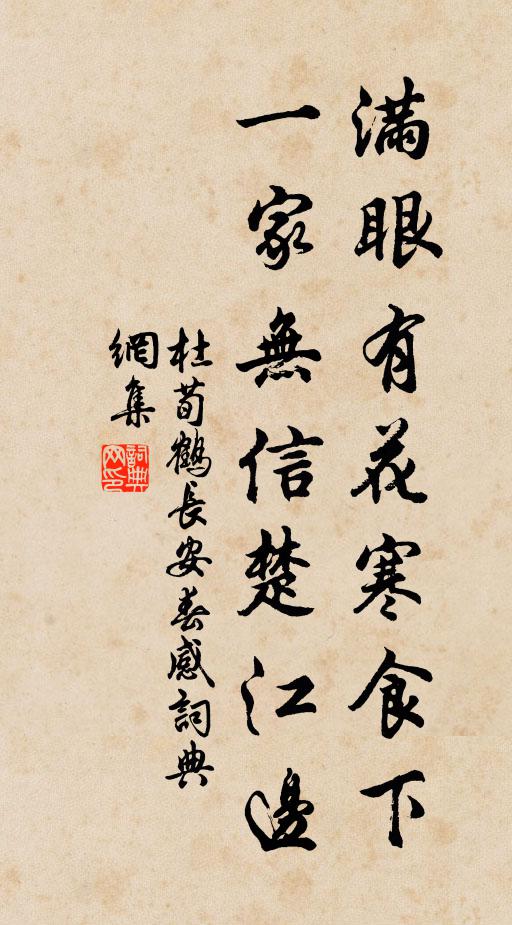 滿眼有花寒食下
一家無信楚江邊
杜荀鶴長安春感詞典
網集
詞典
网印